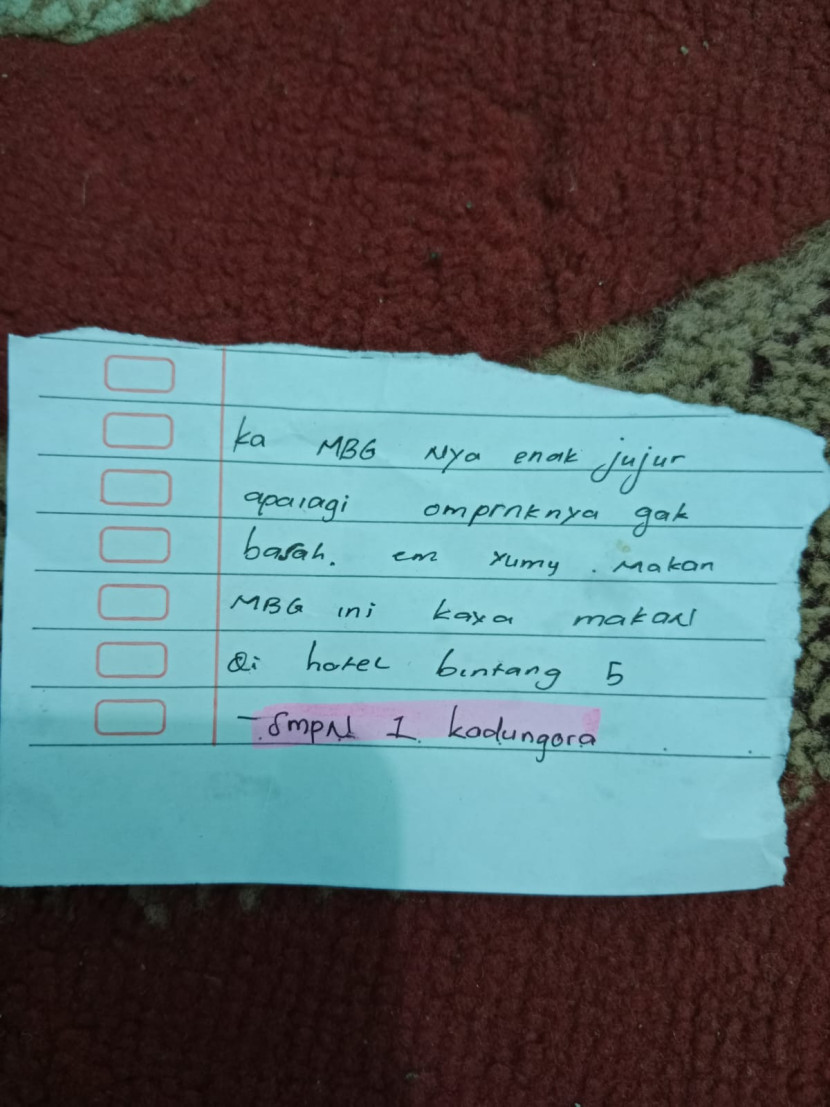 ka MBG Nya enak jujur
apalagi omprnknya gak
basah. em yumy. Makan
MBG ini kaya makan
di hotel bintang 5
- SMPN 1 kadungora